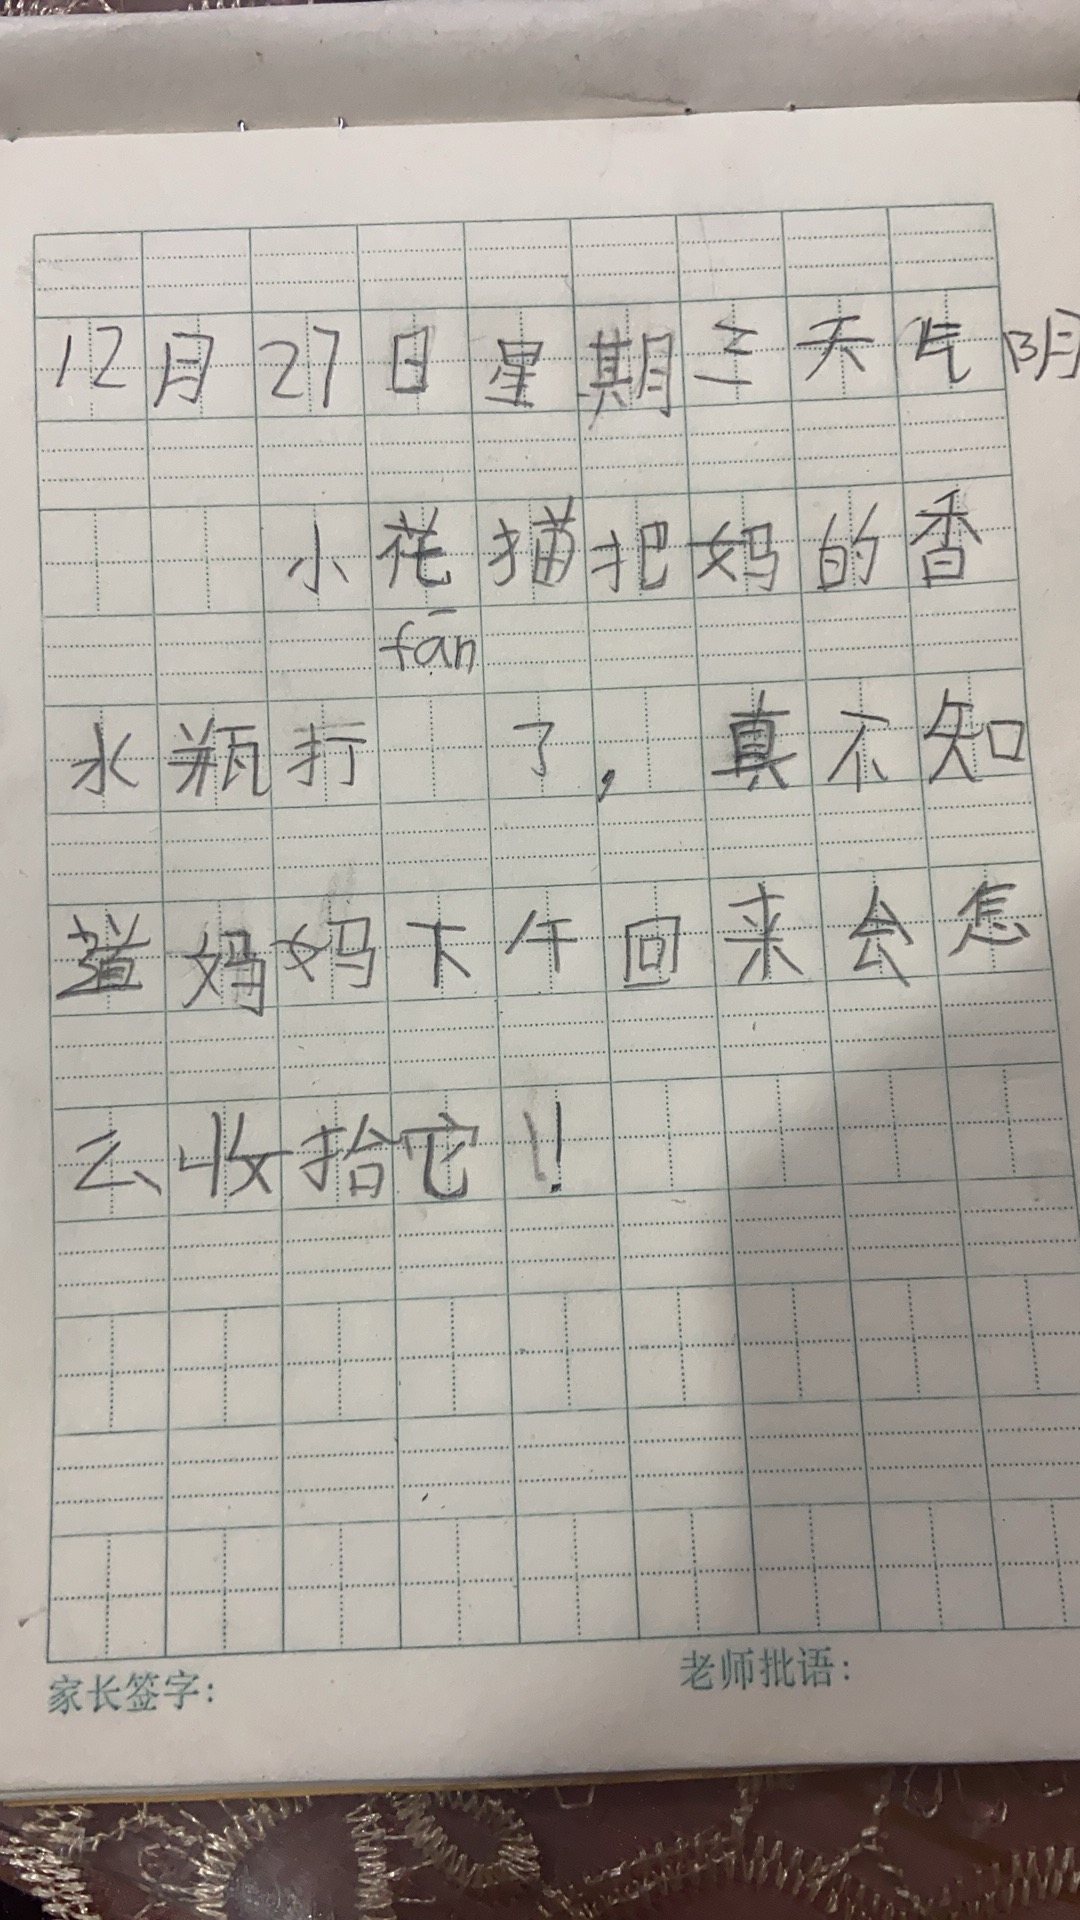 12月27日星期三天气阴
小花猫把妈的香
fān
水瓶打 了，真不知
道妈妈下午回来会怎
么收拾它！
家长签字：
老师批语：